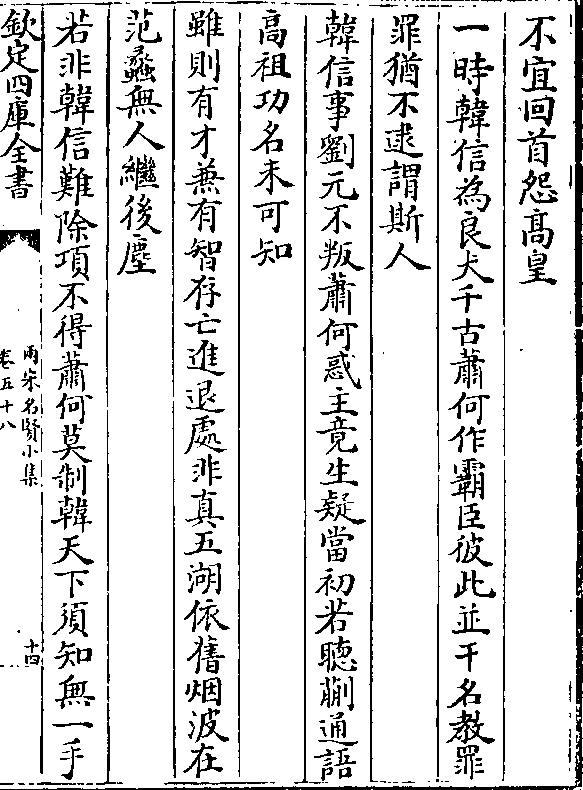 不宜回首怨髙皇
一時韓信為良犬千古蕭何作霸臣彼此並干名教罪
罪猶不逮謂斯人
韓信事劉元不叛蕭何惑主竟生疑當初若聴蒯通語
髙祖功名未可知
雖則有才兼有智存亡進退處非真五湖依舊烟波在
范蠡無人繼後塵
若非韓信難除項不得蕭何莫制韓天下須知無一手
欽定四庫全書
兩宋名賢小集
卷五十八
十四